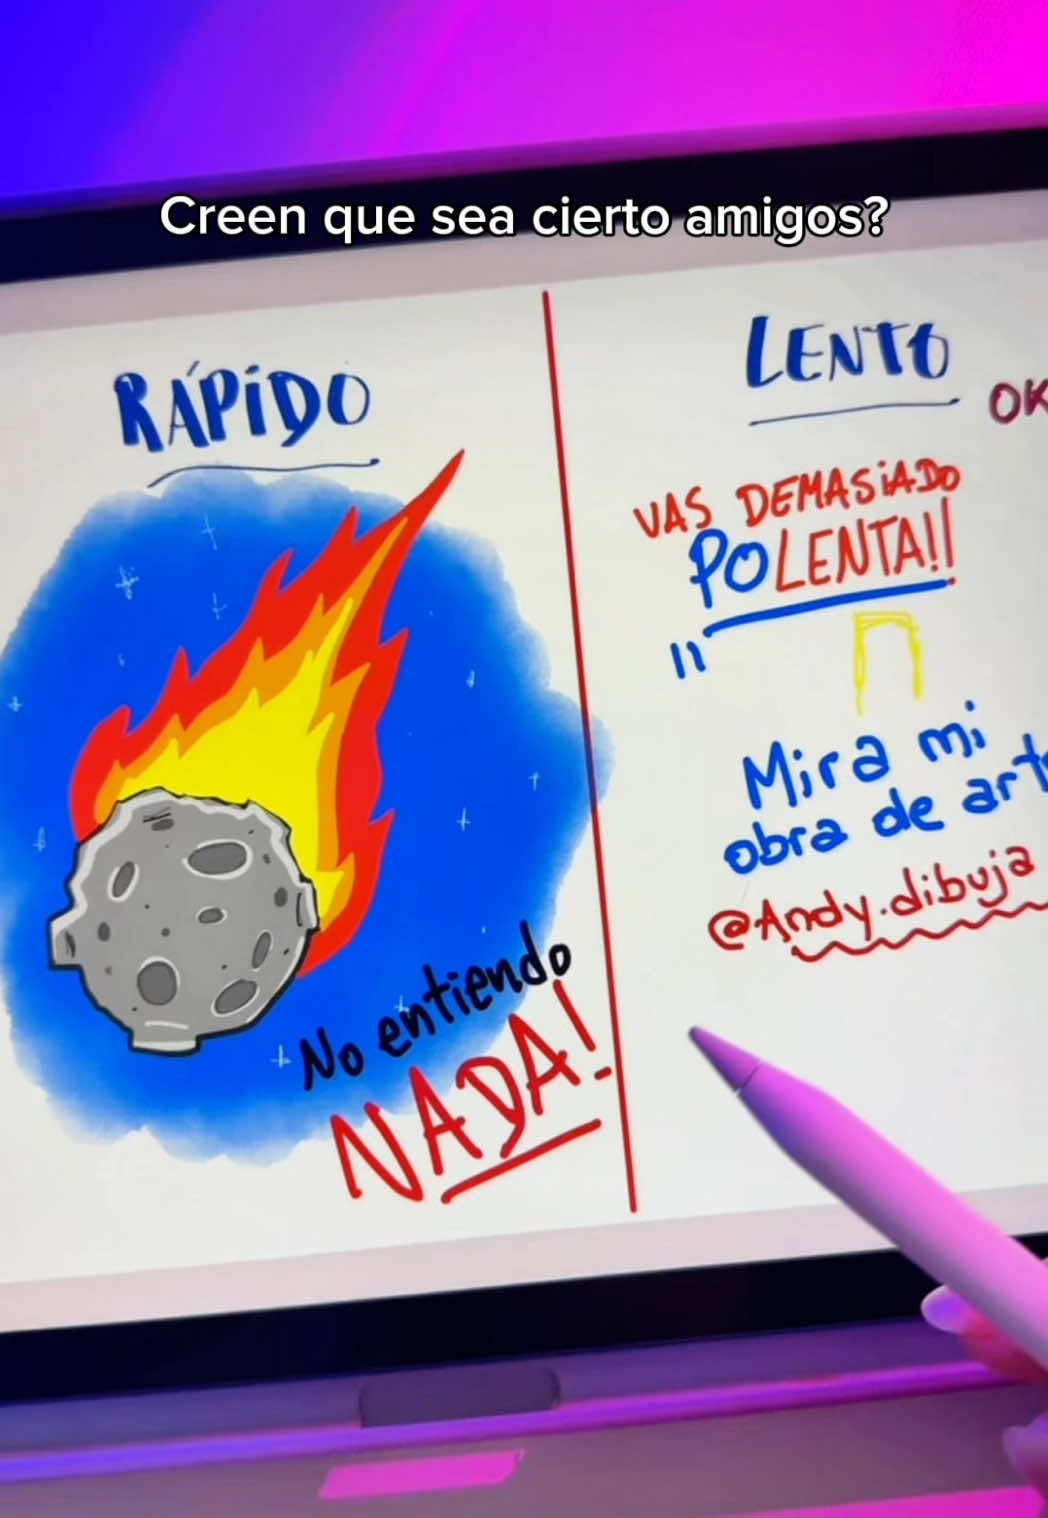 Creen que sea cierto amigos?
RÁPiDO
No entiendo
NADA!
LENTO
OK
VAS DEMASiADO
POLENTA!!
Mira mi
obra de art
@Andy.dibuja